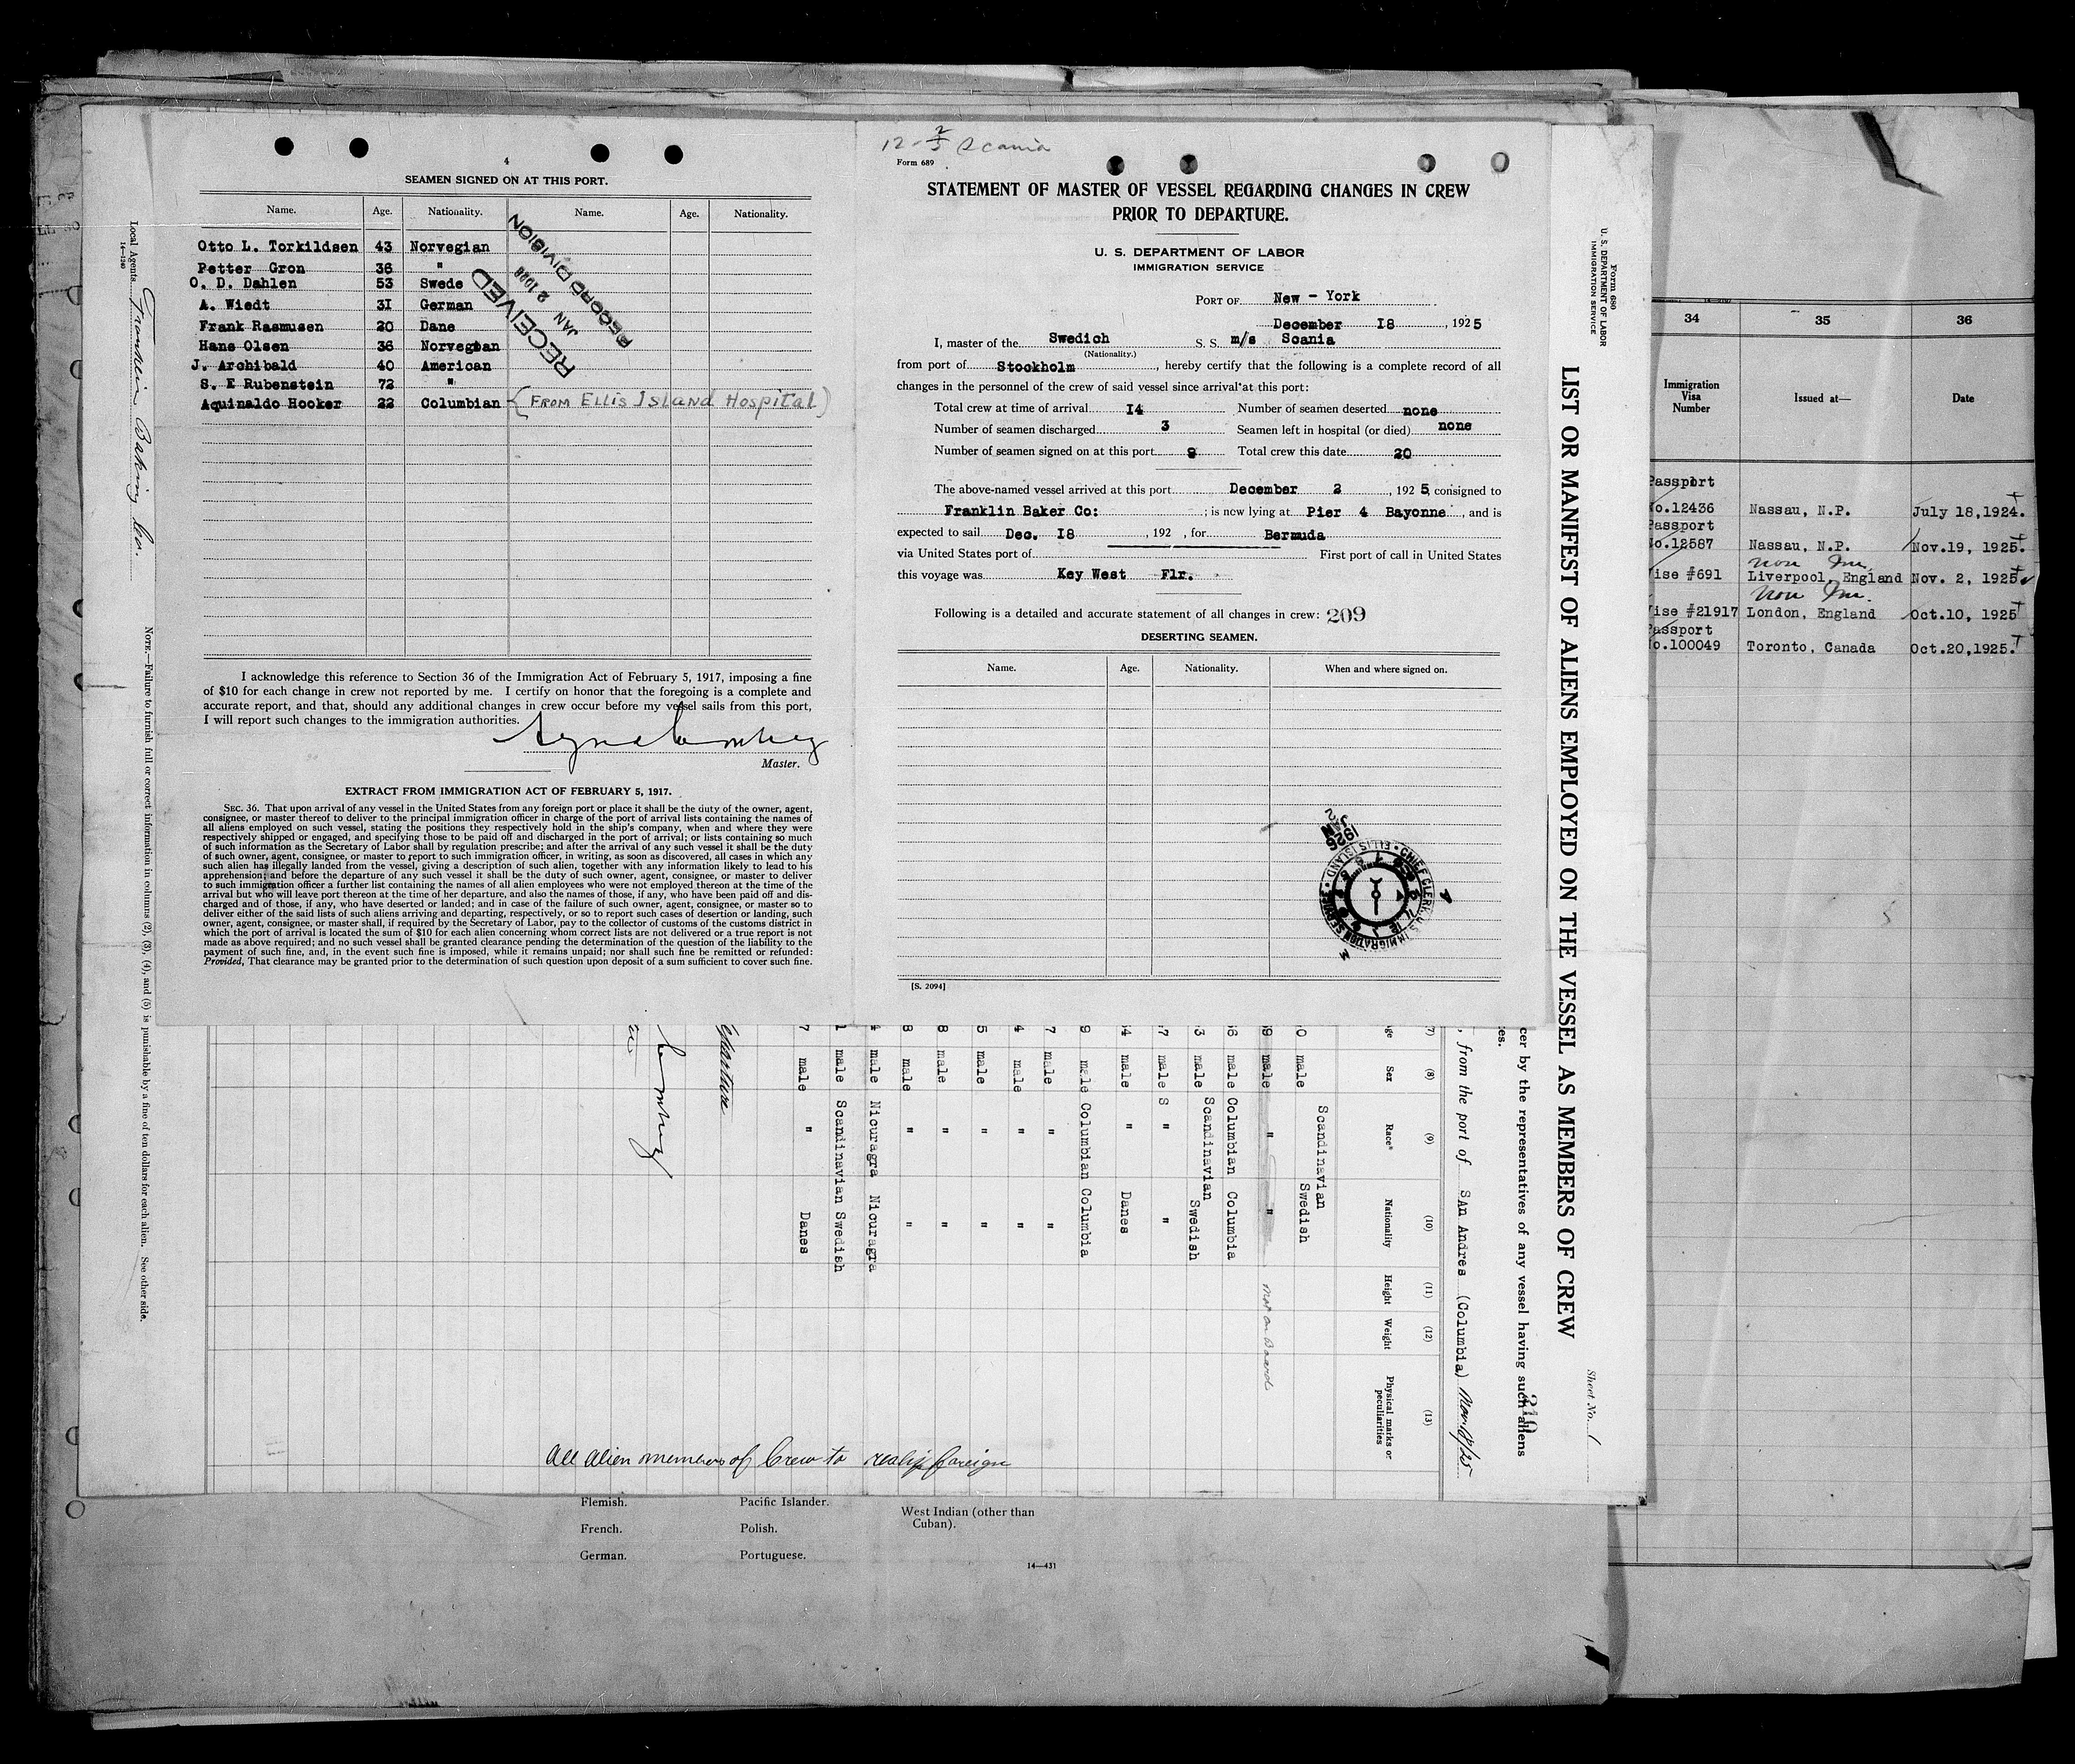 4
SEAMEN SIGNED ON AT THIS PORT.
Name. Age. Nationality. Name. Age. Nationality.
Otto L. Torkildsen 43 Norwegian
Petter Gron 36 "
O. D. Dahlen 53 Swede
A. Wiedt 31 German
Frank Rasmusen 20 Dane
Hans Olsen 36 Norwegian
J. Archibald 40 American
S. E Rubenstein 72 "
Aquinaldo Hooker 22 Columbian (FROM ELLIS ISLAND HOSPITAL)
RECEIVED
JAN 2 1926
RECORD DIVISION
I acknowledge this reference to Section 36 of the Immigration Act of February 5, 1917, imposing a fine
of $10 for each change in crew not reported by me. I certify on honor that the foregoing is a complete and
accurate report, and that, should any additional changes in crew occur before my vessel sails from this port,
I will report such changes to the immigration authorities.
Master.
EXTRACT FROM IMMIGRATION ACT OF FEBRUARY 5, 1917.
SEC. 36. That upon arrival of any vessel in the United States from any foreign port or place it shall be the duty of the owner, agent,
consignee, or master thereof to deliver to the principal immigration officer in charge of the port of arrival lists containing the names of
all aliens employed on such vessel, stating the positions they respectively hold in the ship's company, when and where they were
respectively shipped or engaged, and specifying those to be paid off and discharged in the port of arrival; or lists containing so much
of such information as the Secretary of Labor shall by regulation prescribe; and after the arrival of any such vessel it shall be the duty
of such owner, agent, consignee, or master to report to such immigration officer, in writing, as soon as discovered, all cases in which any
such alien has illegally landed from the vessel, giving a description of such alien, together with any information likely to lead to his
apprehension; and before the departure of any such vessel it shall be the duty of such owner, agent, consignee, or master to deliver
to such immigration officer a further list containing the names of all alien employees who were not employed thereon at the time of the
arrival but who will leave port thereon at the time of her departure, and also the names of those, if any, who have been paid off and dis-
charged and of those, if any, who have deserted or landed; and in case of the failure of such owner, agent, consignee, or master so to
deliver either of the said lists of such aliens arriving and departing, respectively, or so to report such cases of desertion or landing, such
owner, agent, consignee, or master shall, if required by the Secretary of Labor, pay to the collector of customs of the customs district in
which the port of arrival is located the sum of $10 for each alien concerning whom correct lists are not delivered or a true report is not
made as above required; and no such vessel shall be granted clearance pending the determination of the question of the liability to the
payment of such fine, and, in the event such fine is imposed, while it remains unpaid; nor shall such fine be remitted or refunded:
Provided, That clearance may be granted prior to the determination of such question upon deposit of a sum sufficient to cover such fine.
Scania
Form 689
STATEMENT OF MASTER OF VESSEL REGARDING CHANGES IN CREW
PRIOR TO DEPARTURE.
U. S. DEPARTMENT OF LABOR
IMMIGRATION SERVICE
PORT OF New - York
December 18, 1925
I, master of the Swedich S. S. m/s Scania
(Nationality.)
from port of Stockholm, hereby certify that the following is a complete record of all
changes in the personnel of the crew of said vessel since arrival at this port:
Total crew at time of arrival 14 Number of seamen deserted none
Number of seamen discharged 3 Seamen left in hospital (or died) none
Number of seamen signed on at this port 9 Total crew this date 20
The above-named vessel arrived at this port December 2, 1925, consigned to
Franklin Baker Co: ; is now lying at Pier 4 Bayonne, and is
expected to sail Dec. 18, 192 , for Bermuda
via United States port of First port of call in United States
this voyage was Key West Flr.
Following is a detailed and accurate statement of all changes in crew: 209
DESERTING SEAMEN.
Name. Age. Nationality. When and where signed on.
JAN 2 1926
CHIEF CLERK U.S. IMMIGRATION SERVICE ELLIS ISLAND
[S. 2094]
Form 680
U. S. DEPARTMENT OF LABOR
IMMIGRATION SERVICE
LIST OR MANIFEST OF ALIENS EMPLOYED ON THE VESSEL AS MEMBERS OF CREW
Sheet No. 1
cer by the representatives of any vessel having such aliens
, from the port of SAn Andrea (Columbia)
(7) (8) (9) (10) (11) (12) (13)
Sex Race* Nationality Height Weight Physical marks or peculiarities
0 male Scandinavian Swedish
9 male " " not on Board
6 male Columbian Columbia
3 male Scandinavian Swedish
7 male S " "
4 male " Danes
9 male Columbian Columbia
7 male " "
4 male " "
5 male " "
8 male " "
8 male " "
4 male Nicuragra Nicuragra
1 male Scandinavian Swedish
7 male " Danes
All alien members of Crew to foreign
Local Agents Franklin Baking Co.
14—1240
NOTE.—Failure to furnish full or correct information in columns (2), (3), (4), and (5) is punishable by a fine of ten dollars for each alien. See other side.
Flemish. Pacific Islander. West Indian (other than
Cuban).
French. Polish.
German. Portuguese.
14—431
34 35 36
Immigration Visa Number Issued at— Date
Passport
No.12436 Nassau, N.P. July 18,1924.
Passport
No.12587 Nassau, N.P. Nov.19, 1925.
non Im.
ise #691 Liverpool, England Nov. 2, 1925
non Im.
ise #21917 London, England Oct.10, 1925
Passport
No.100049 Toronto, Canada Oct.20,1925.